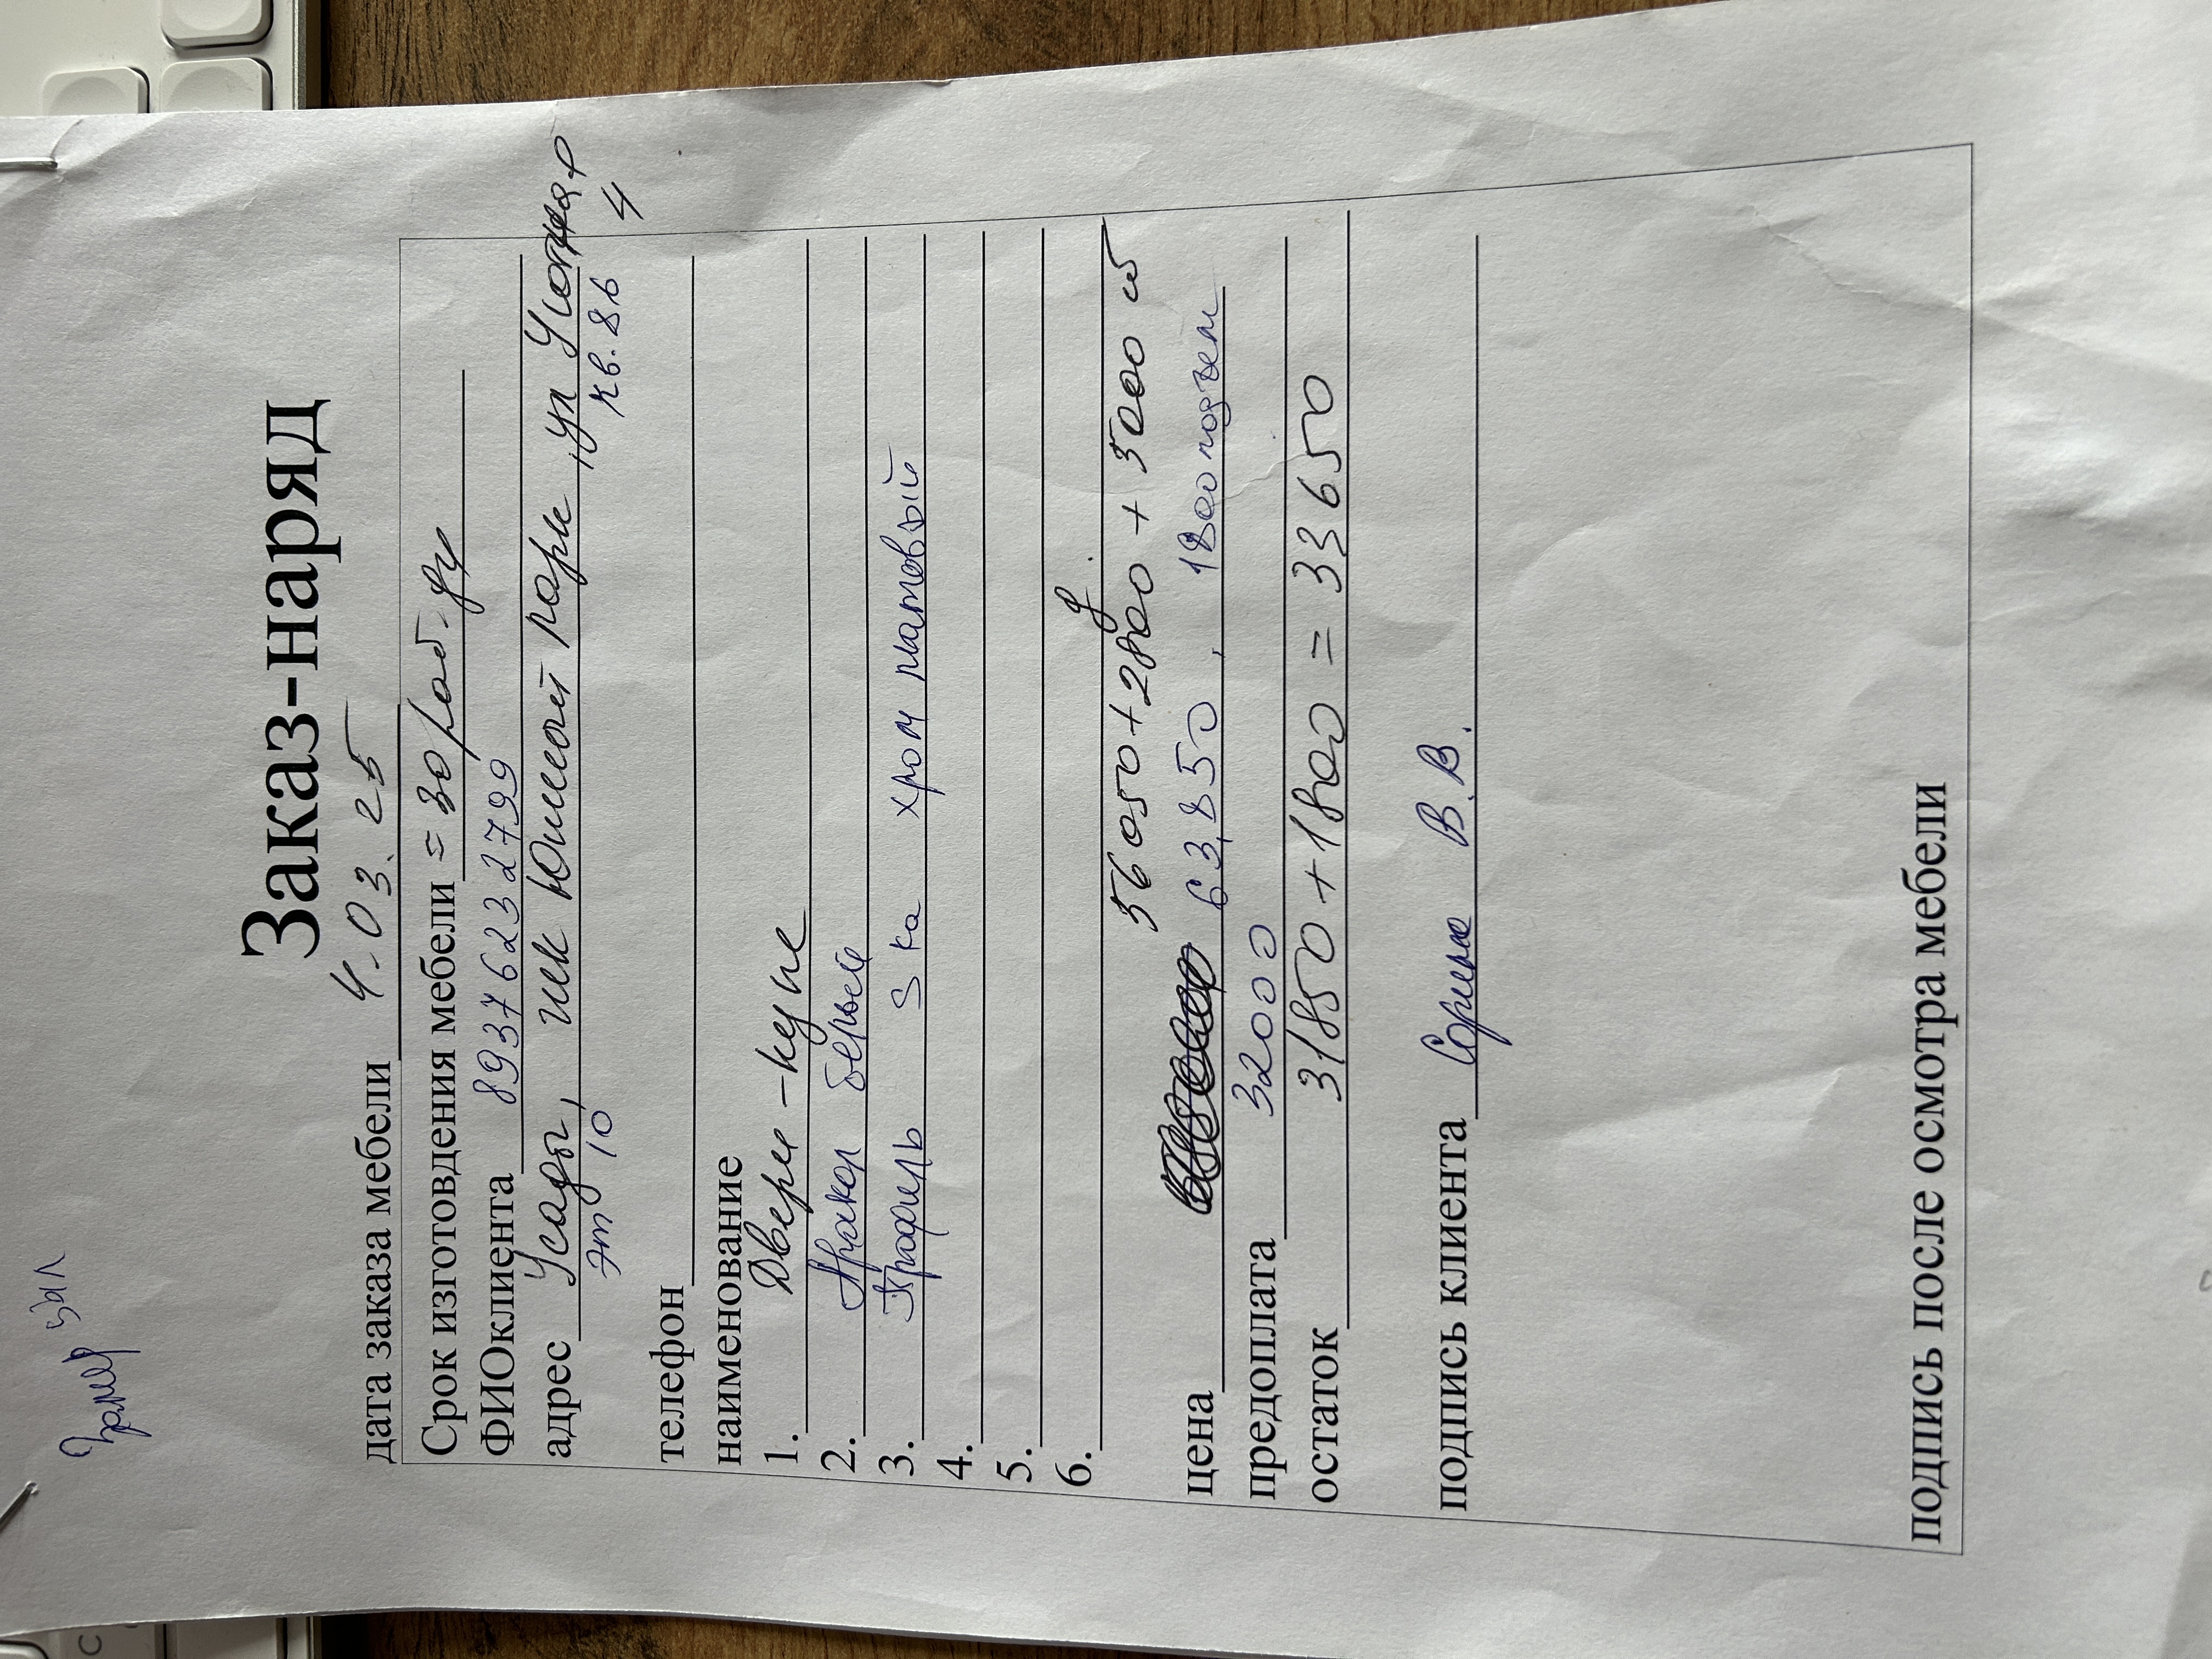 Замер был
Заказ-наряд
дата заказа мебели 4.03.25
Срок изготовдения мебели = 30 раб. дн
ФИОклиента 89376232799
адрес Усады, жк Южный парк, ул Уютная
эт 10 кв. 86 4
телефон
наименование
1. Двери-купе
2. Аракол белый
3. Профиль Ska хром матовый
4.
5.
6. д.
56050+2800 + 5000 сб
цена 63,850, 1800 подъем
предоплата 32000
остаток 31850+1800 = 33650
подпись клиента В.В.
подпись после осмотра мебели